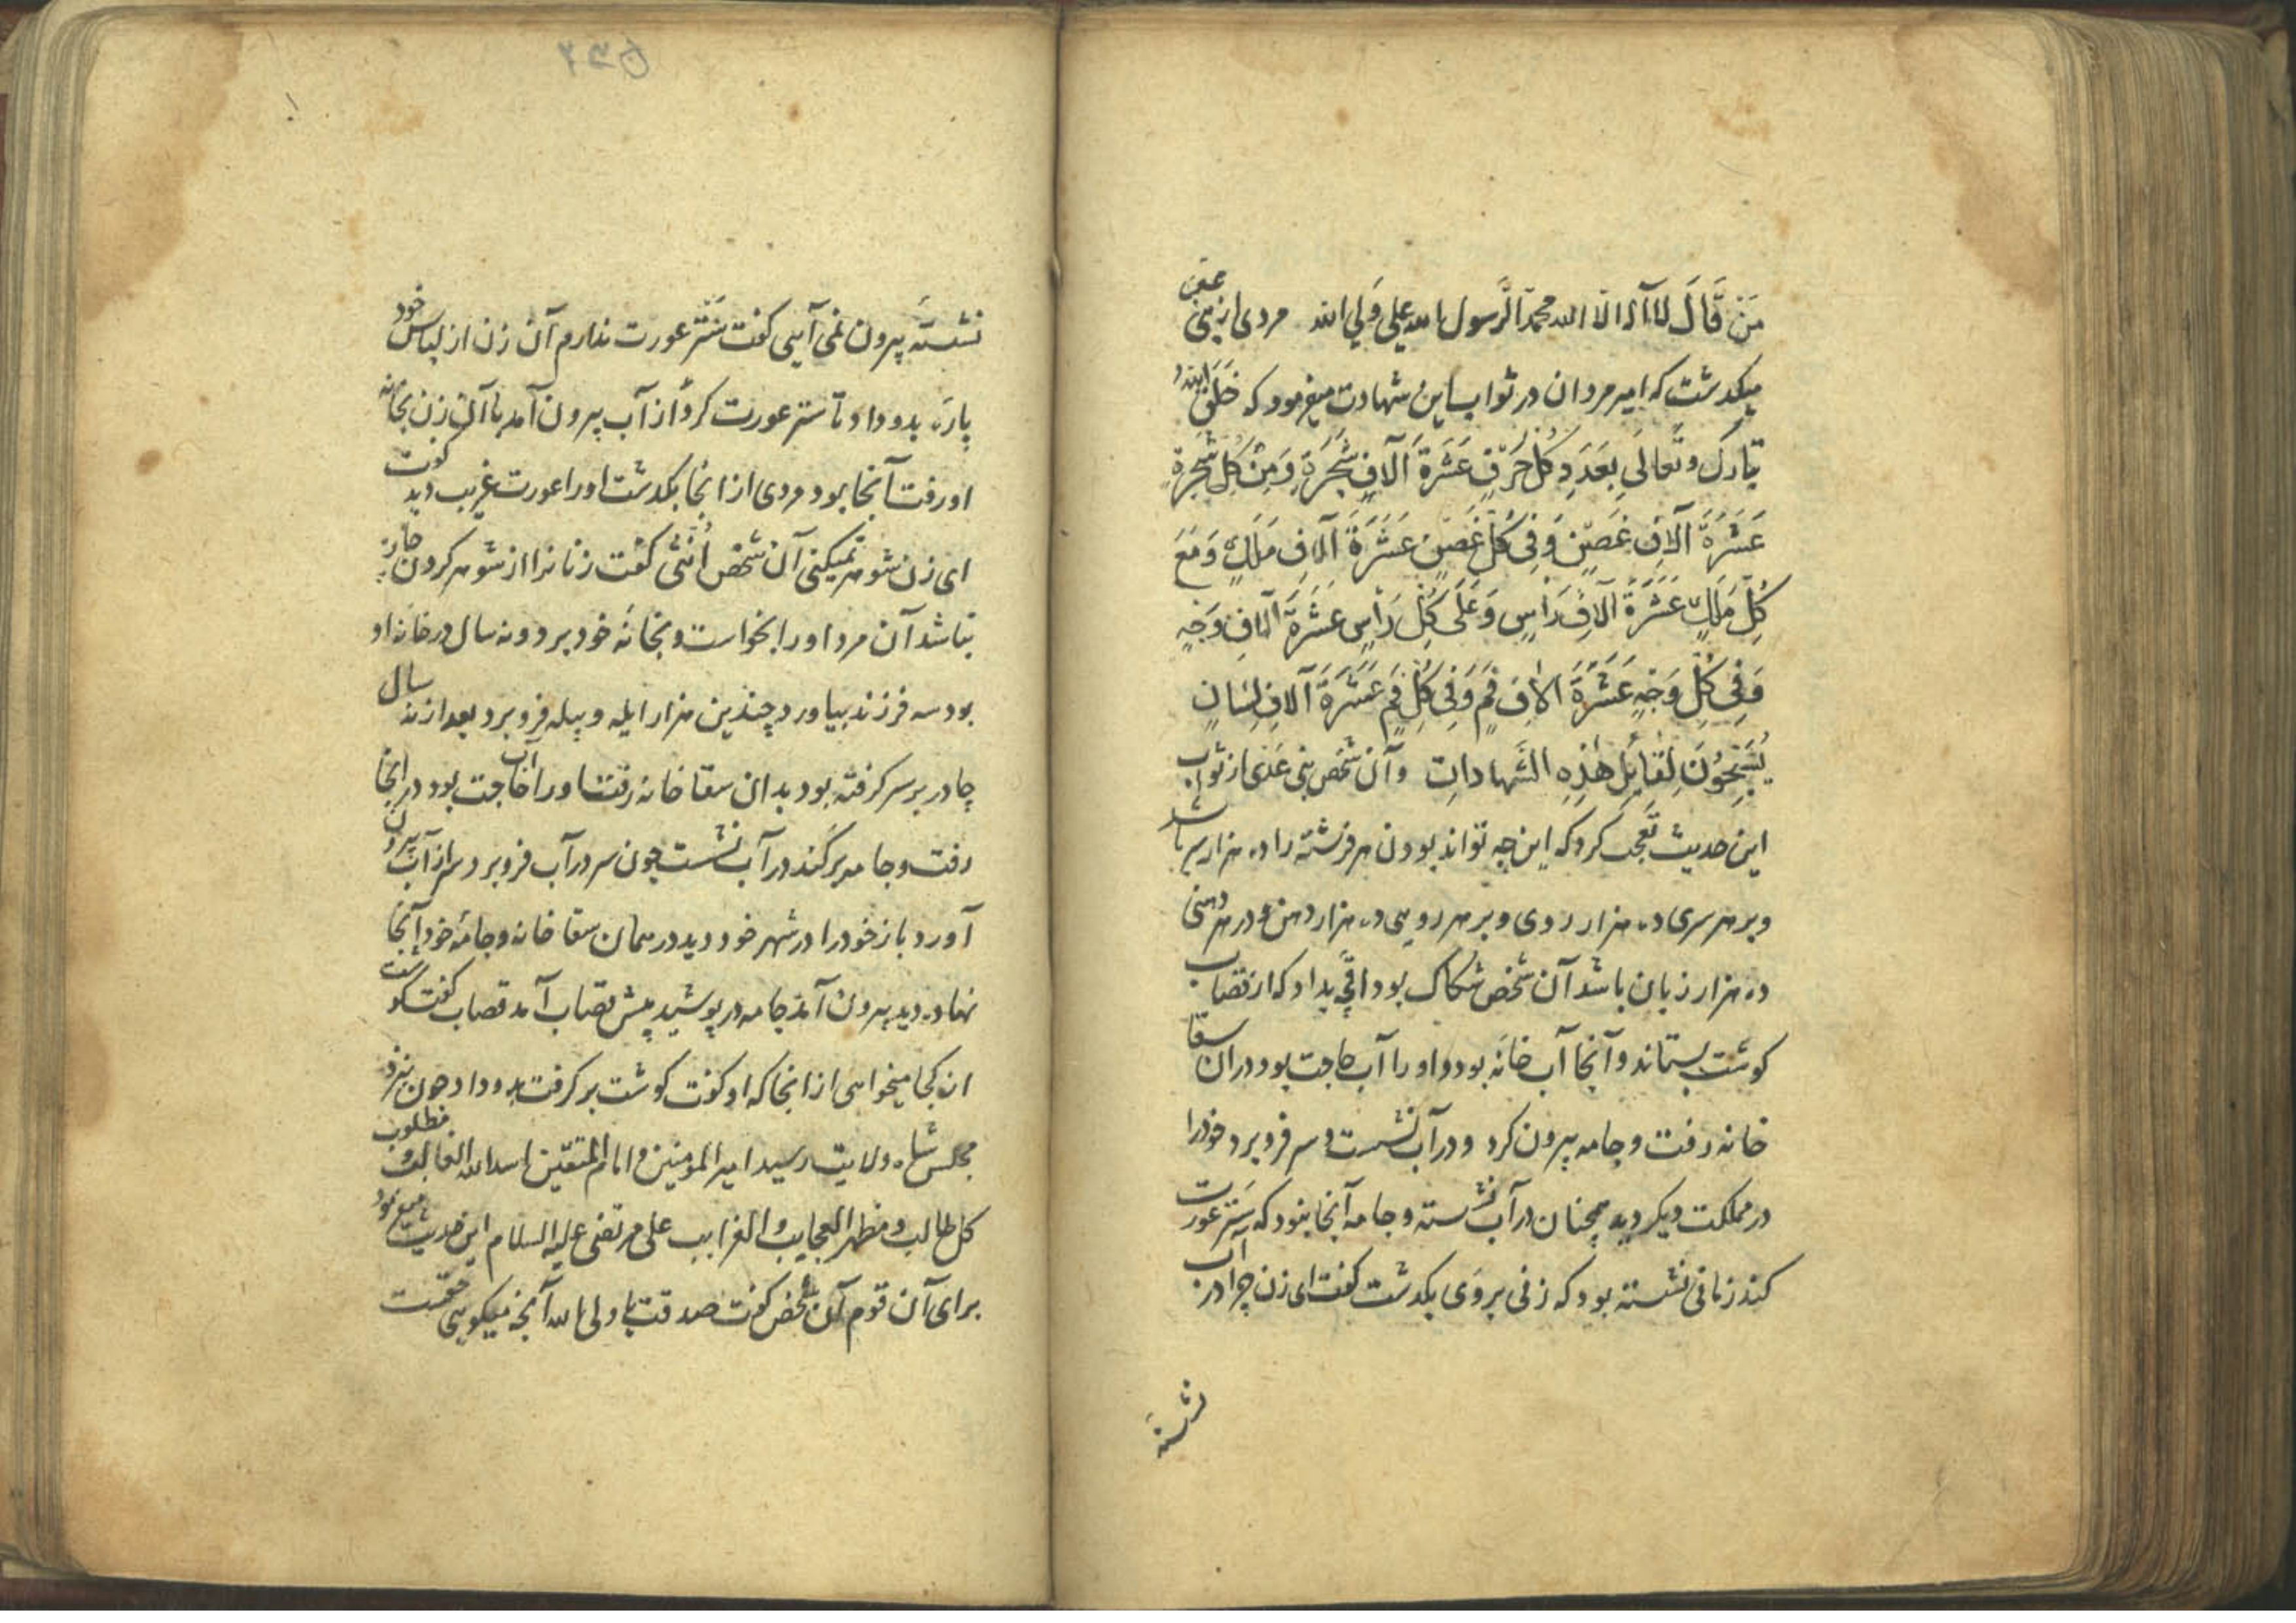 مَنْ قَالَ لا آله الا الله محمدٌ الرَّسول الله علي وَلي الله مردی از بنی عدی
میکدشت که امیر مردان در ثواب این شهادت میفرمود که خَلَقَ الله
تبارک و تَعالَی بِعَدَدِ کُلِّ حَرْفٍ عَشَرَةَ آلافِ شَجَرَةٍ وَمِنْ کُلِّ شَجَرَةٍ
عَشَرَةَ آلافِ غَصِنٍ وَفِی کُلِّ غَصِنٍ عَشَرَةَ آلافِ مَلَكٍ وَمَعَ
کُلِّ مَلَكٍ عَشَرَةَ آلافِ رَاسٍ وَعَلَی کُلِّ رَاسٍ عَشَرَةَ آلافِ وَجْهٍ
وَفِی کُلِّ وَجْهٍ عَشَرَةَ الافِ فَمٍ وَفِی کُلِّ فَمٍ عَشَرَةَ آلافِ لِسَانٍ
یُسَبِّحُونَ لِقَایِلِ هٰذِهِ الشَّهادات و آن شخص بنی عدی از ثواب
این حدیث تعجب کرد که این چه تواند بودن هر فرشته را ده هزار سر باشد
و بر هر سری ده هزار روی و بر هر رویی ده هزار دهن و در هر دهنی
ده هزار زبان باشد آن شخص شکاک بود اقچه بداد که از قصاب
کوشت بستاند و آنجا آب خانه بود و او را آب حاجت بود در ان سقا
خانه رفت و جامه بیرون کرد و در آب نشست و سر فرو برد خود را
در مملکت دیکر دید همچنان در آب نشسته و جامه آنجا بنود که ستر عورت
کند زمانی نشسته بود که زنی بروی بکدشت کفت ای زن چرا در آب
نشسته
نشسته بیرون نمی آیی کفت ستر عورت ندارم آن زن از لباس خود
پاره بدو داد تا ستر عورت کرد از آب بیرون آمد با آن زن بخانه
او رفت آنجا بود مردی از انجا بکدشت او را عورت غریب دید کفت
ای زن شوهر نمیکنی آن شخص اُنثی کفت زنانرا از شوهر کردن چاره
نباشد آن مرد او را بخواست و بخانه خود برد و نه سال در خانه او
بود سه فرزند بیاورد چندین هزار ایله و پیله فرو برد بعد از نه سال
چادر بر سر کرفته بود بدان سقا خانه رفت او را آب حاجت بود در انجا
رفت و جامه برکند در آب نشست چون سر در آب فرو برد سر از آب بیرون
آورد باز خود را در شهر خود دید در همان سقا خانه و جامه خود آنجا
نهاده دید بیرون آمد جامه در پوشید پیش قصاب آمد قصاب کفت کوشت
از کجا میخواهی از انجا که او کفت کوشت بر کرفت بدو داد چون بنزد
مجلس شاه ولایت رسید امیر المومنین و امام المتقین اسد الله الغالب و مطلوب
کل طالب و مظهر العجایب و الغرایب علی مرتضی علیه السلام این حدیث میفرمود
برای آن قوم آن شخص کفت صدقت یا ولی الله آنچه میکویی حقست